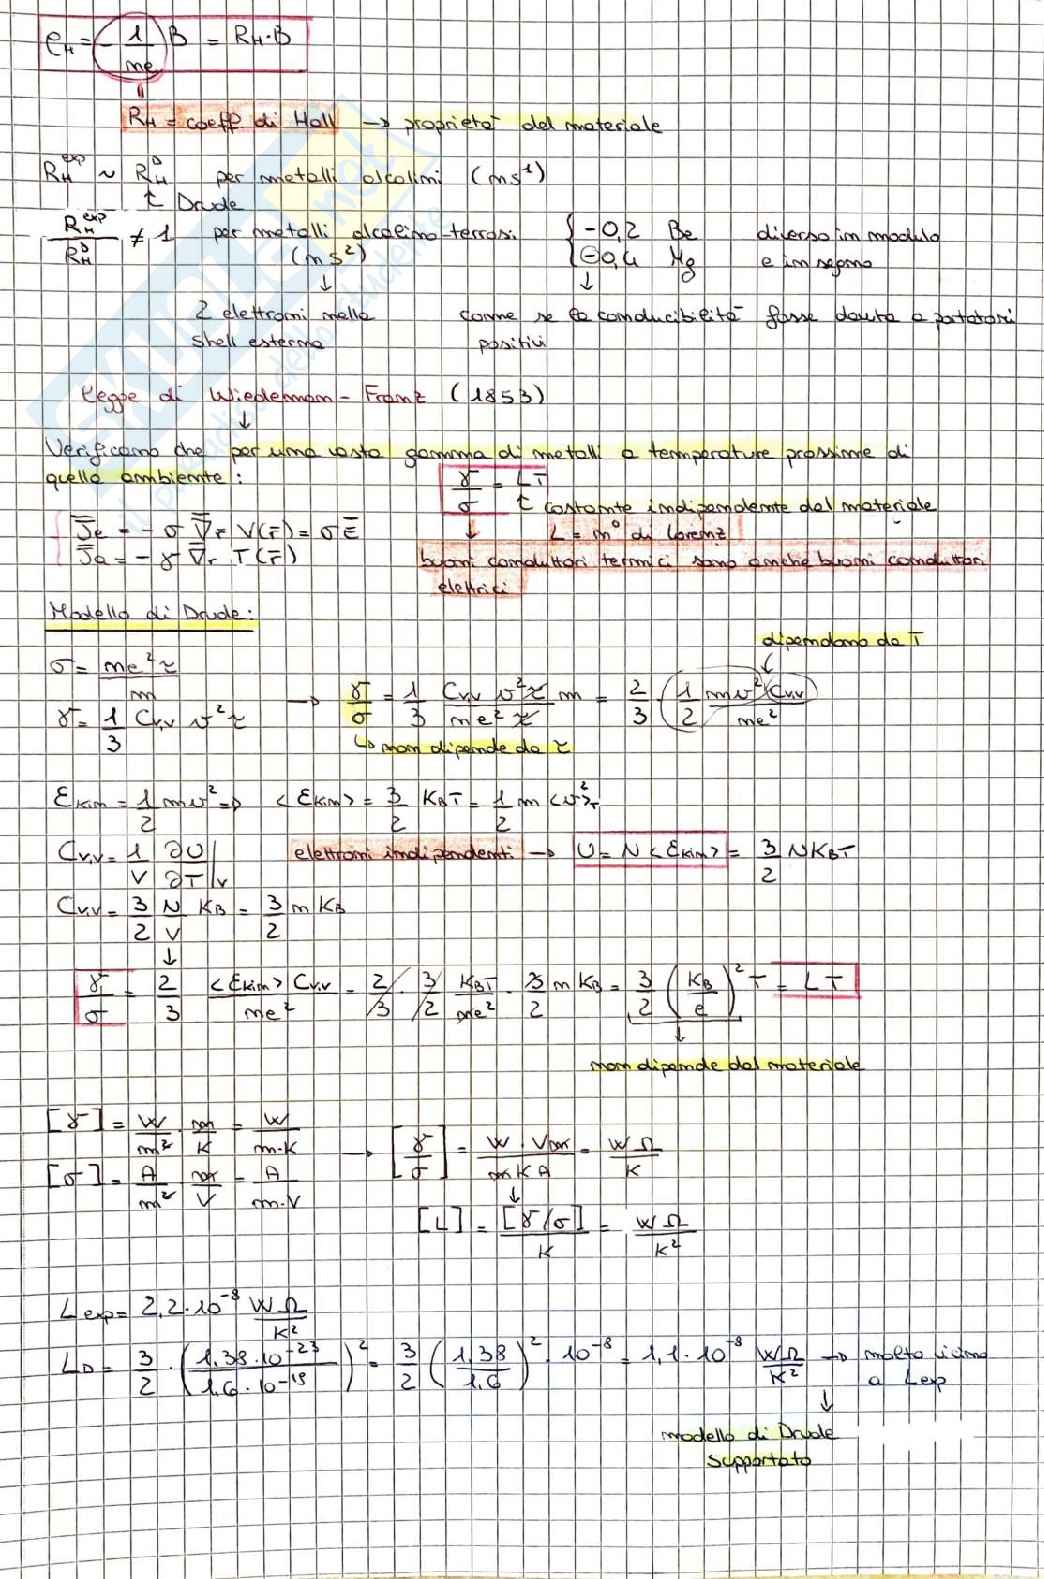 ρ_H = (-1/ne) B = R_H·B
R_H = coeff di Hall → proprietà del materiale
R_H^exp ~ R_H^D per metalli alcalini (ns¹)
↑ Drude
R_H^exp / R_H^D ≠ 1 per metalli alcalino-terrosi (ns²) { -0,2 Be diverso in modulo
-0,4 Mg e in segno
2 elettroni nella come se la conducibilità fosse dovuta a portatori
shell esterna positivi
Legge di Wiedemann-Franz (1853)
Verificano che per una vasta gamma di metalli a temperature prossime di
quella ambiente: γ/σ = LT
↑ costante indipendente dal materiale
J̄e = -σ ∇̄r V(r̄) = σĒ L = n° di Lorenz
J̄q = -γ ∇̄r T(r̄) buoni conduttori termici sono anche buoni conduttori
elettrici
Modello di Drude:
dipendono da T
σ = ne²τ/m
γ = 1/3 Cv,v v²τ → γ/σ = 1/3 Cv,v v²τ m / ne²τ = 2/3 (1/2 mv² Cv,v / ne²)
↳ non dipende da τ
Ekin = 1/2 mv² ⇒ <Ekin> = 3/2 KBT = 1/2 m <v²>T
Cv,v = 1/V ∂U/∂T |v elettroni indipendenti → U = N <Ekin> = 3/2 NKBT
Cv,v = 3/2 N/V KB = 3/2 n KB
γ/σ = 2/3 <Ekin> Cv,v / ne² = 2/3 · 3/2 KBT/ne² · 3/2 n KB = 3/2 (KB/e)² T = LT
non dipende dal materiale
[γ] = W/m² · m/K = W/m·K
[σ] = A/m² · m/V = A/m·V → [γ/σ] = W·V m / m K A = WΩ/K
[L] = [γ/σ]/K = WΩ/K²
L exp = 2,2·10⁻⁸ WΩ/K²
L_D = 3/2 · (1,38·10⁻²³ / 1,6·10⁻¹⁹)² = 3/2 (1,38/1,6)² · 10⁻⁸ = 1,1·10⁻⁸ WΩ/K² → molto vicino
a Lexp
modello di Drude
supportato